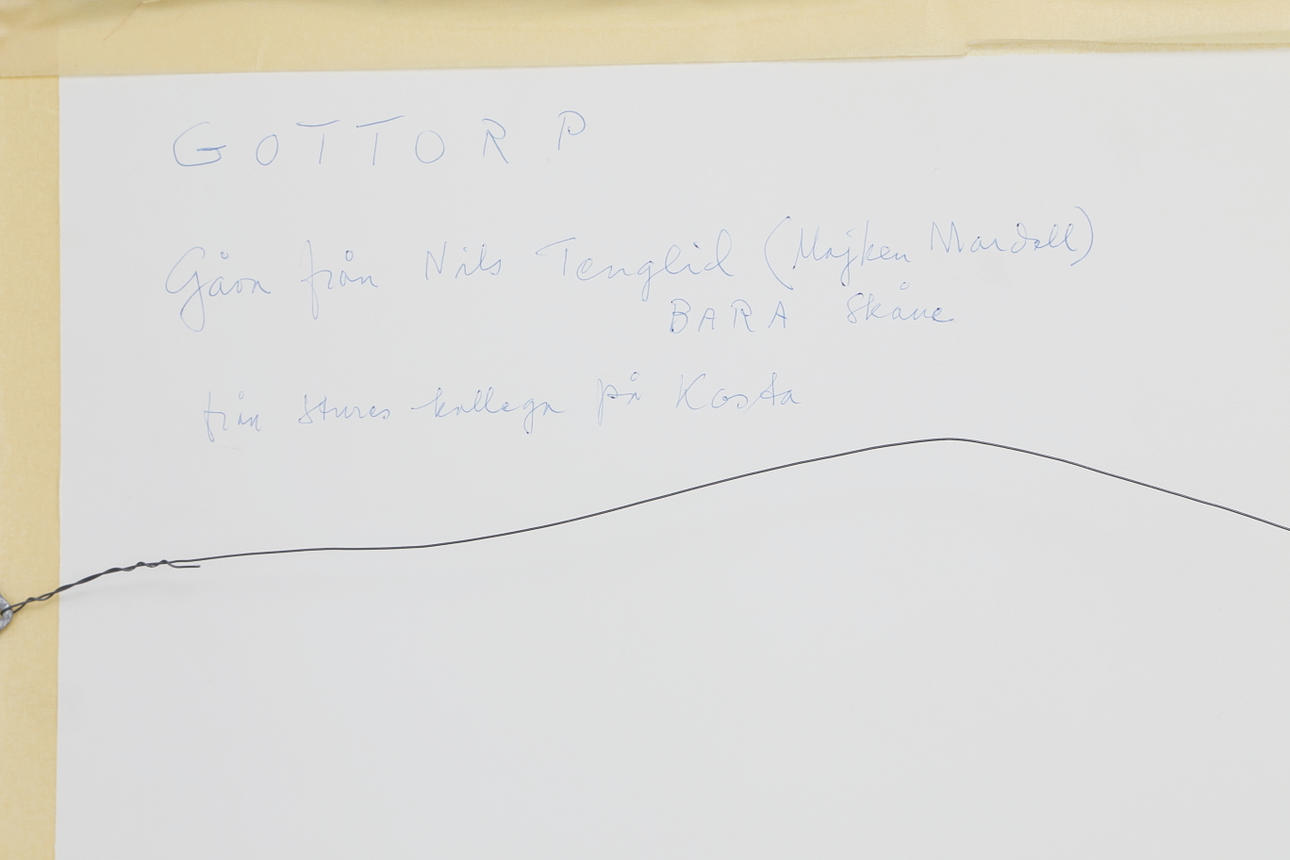 GOTTORP
Gåva från Nils Tenglid (Majken Mardall)
BARA Skåne
från Stures kollega på Kosta